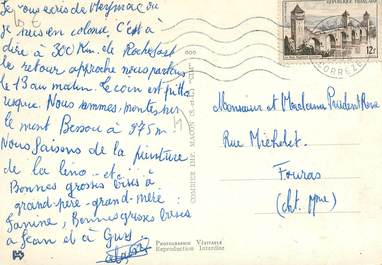 Je vous écris de Meymac ou
je suis en colonie, c'est à
dire à 300 Km. de Rochefort
le retour approche nous partons
le 13 au matin. Le coin est pitto
resque. Nous sommes montés sur
le mont Bessou à 975m
Nous faisons de la peinture
de la lino. et
Bonnes grosses bises à
grand-père - grand-mère
Janine, Bonnes grosses bises
à Jean et à Guy
PHOTOGRAPHIE VÉRITABLE
Reproduction Interdite
COMBIER IMP. MACON (S.-et-L.) "CIM"
RÉPUBLIQUE FRANÇAISE
12F
CORRÈZE
Monsieur et Madame Prudent Rose
Rue Michelet
Fouras
(Cht. Mme)